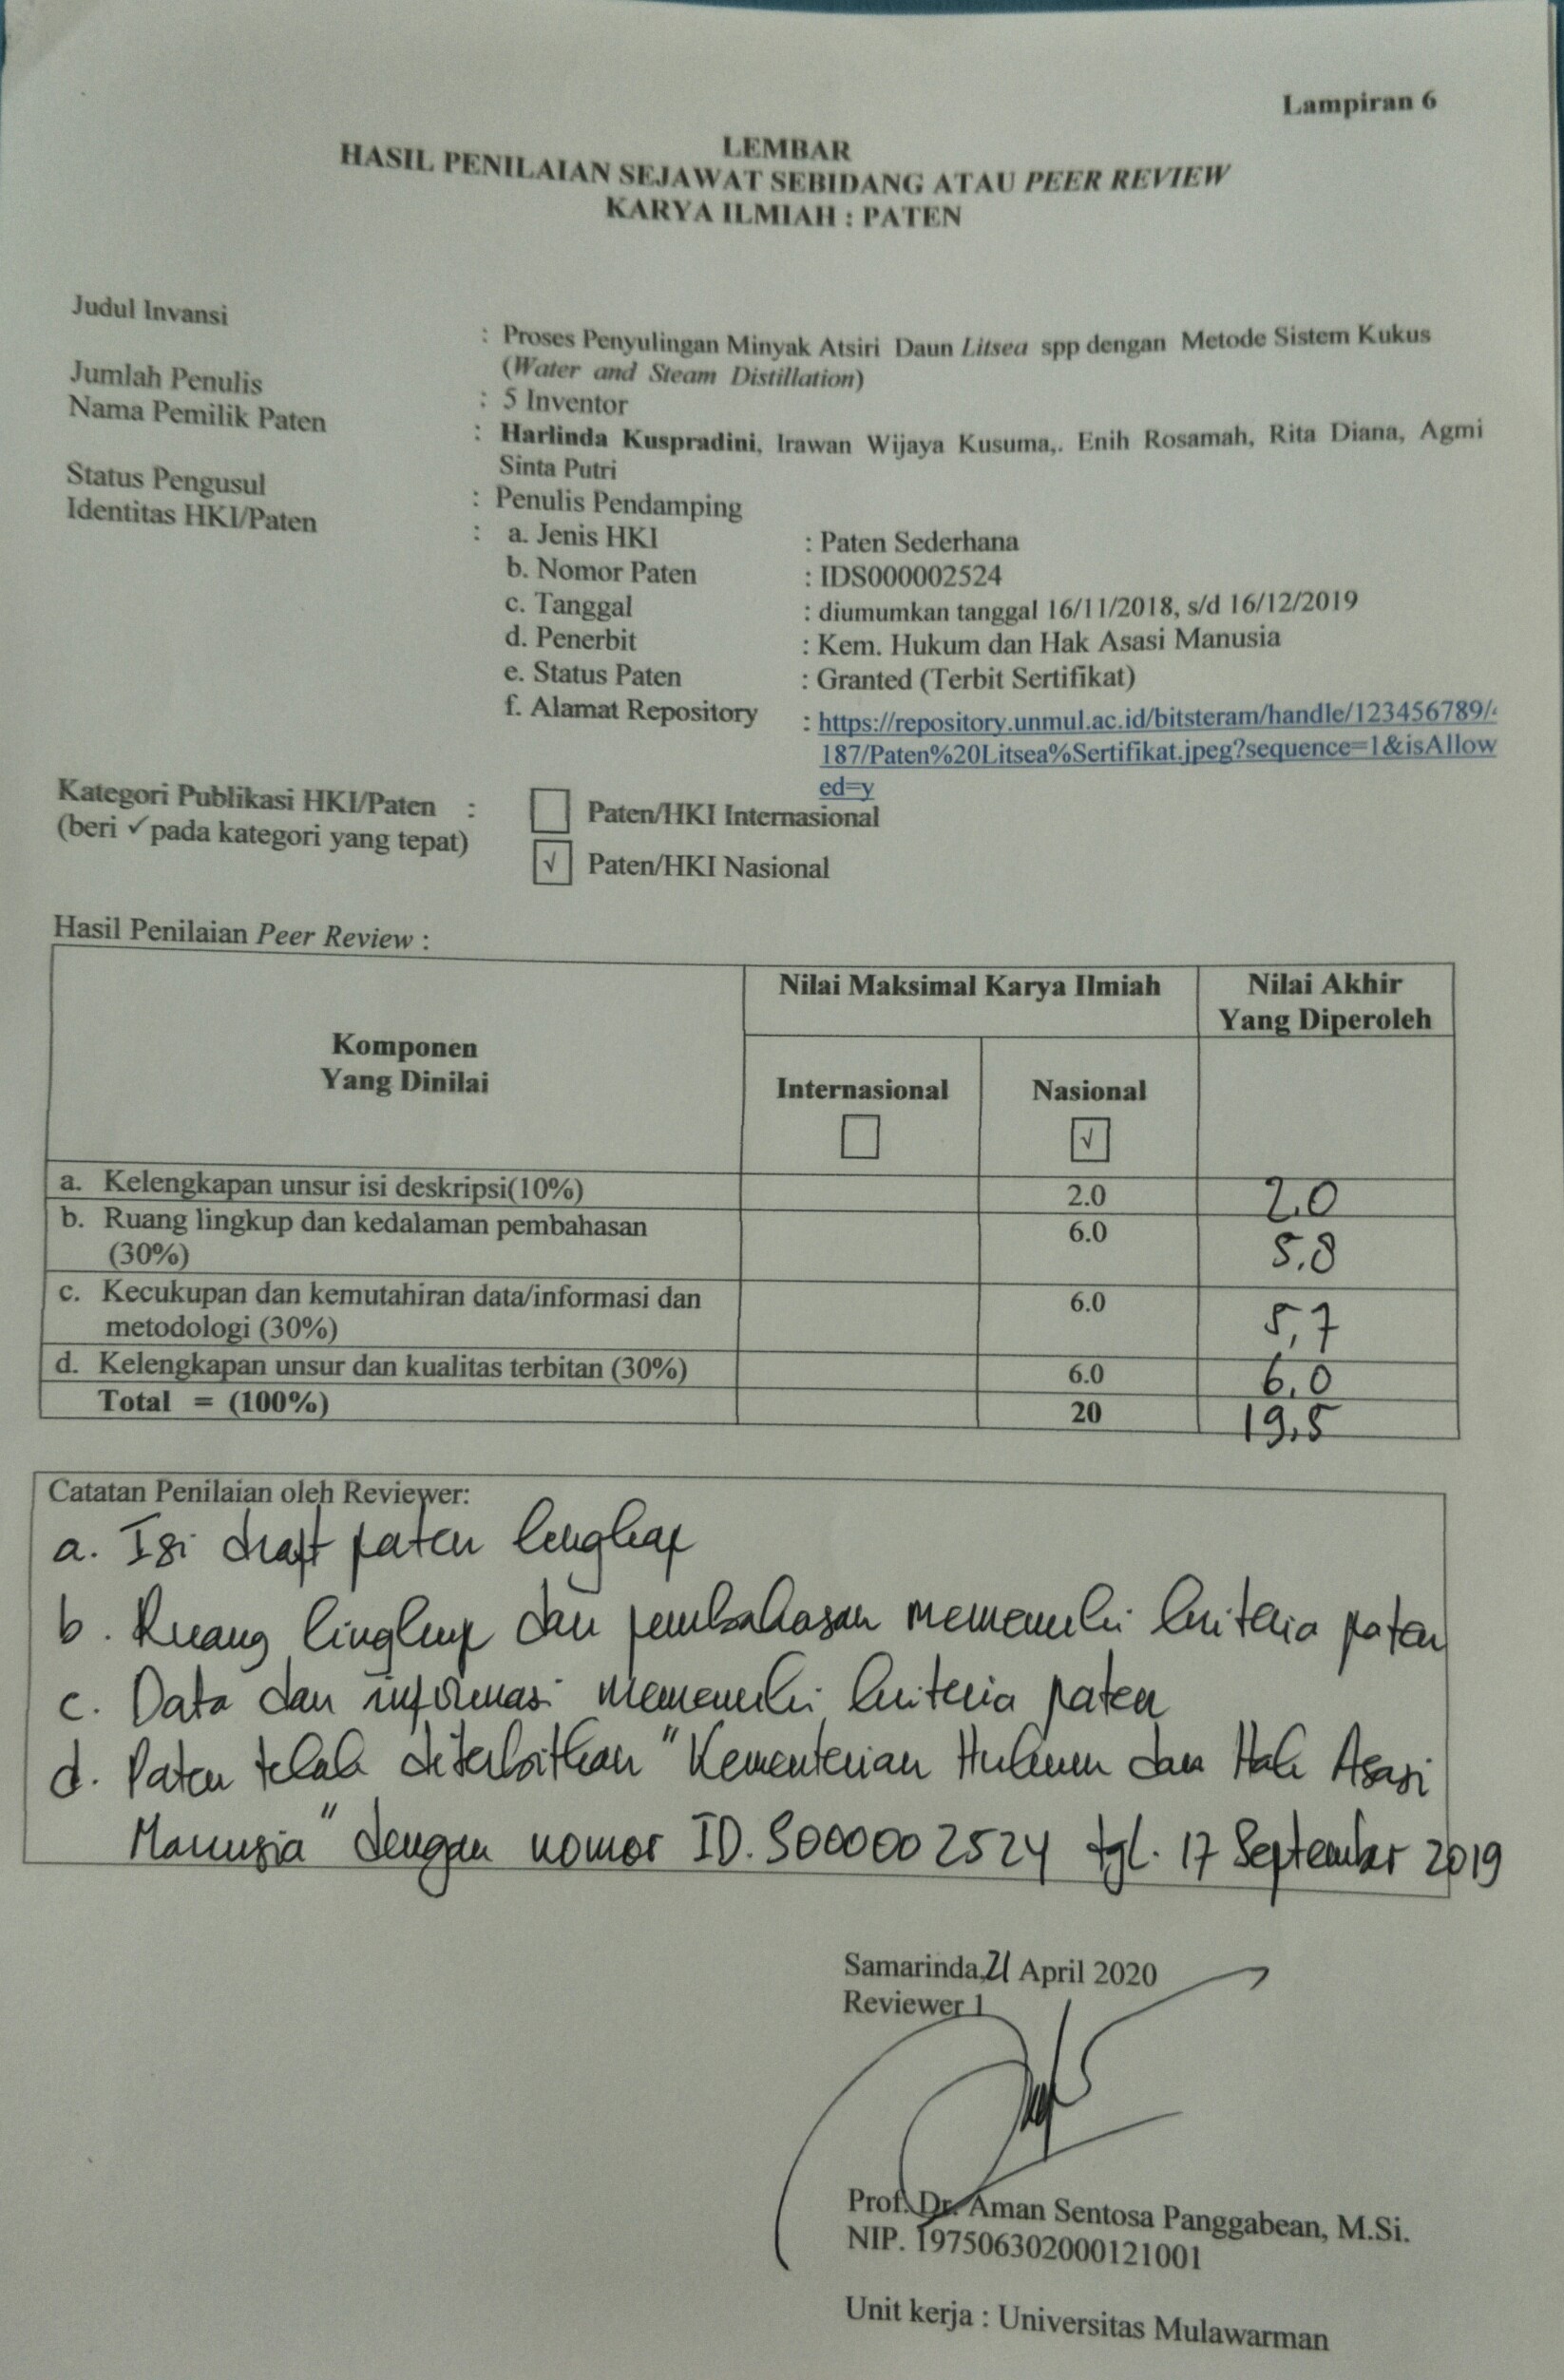 Lampiran 6
LEMBAR
HASIL PENILAIAN SEJAWAT SEBIDANG ATAU PEER REVIEW
KARYA ILMIAH : PATEN
Judul Invansi : Proses Penyulingan Minyak Atsiri Daun Litsea spp dengan Metode Sistem Kukus
(Water and Steam Distillation)
Jumlah Penulis : 5 Inventor
Nama Pemilik Paten : Harlinda Kuspradini, Irawan Wijaya Kusuma,. Enih Rosamah, Rita Diana, Agmi
Sinta Putri
Status Pengusul : Penulis Pendamping
Identitas HKI/Paten : a. Jenis HKI : Paten Sederhana
b. Nomor Paten : IDS000002524
c. Tanggal : diumumkan tanggal 16/11/2018, s/d 16/12/2019
d. Penerbit : Kem. Hukum dan Hak Asasi Manusia
e. Status Paten : Granted (Terbit Sertifikat)
f. Alamat Repository : https://repository.unmul.ac.id/bitsteram/handle/123456789/
187/Paten%20Litsea%Sertifikat.jpeg?sequence=1&isAllow
ed=y
Kategori Publikasi HKI/Paten : Paten/HKI Internasional
(beri ✓ pada kategori yang tepat) √ Paten/HKI Nasional
Hasil Penilaian Peer Review :
Komponen Yang Dinilai
Nilai Maksimal Karya Ilmiah
Nilai Akhir Yang Diperoleh
Internasional
Nasional
√
a. Kelengkapan unsur isi deskripsi(10%) 2.0 2,0
b. Ruang lingkup dan kedalaman pembahasan 6.0 5,8
(30%)
c. Kecukupan dan kemutahiran data/informasi dan 6.0 5,7
metodologi (30%)
d. Kelengkapan unsur dan kualitas terbitan (30%) 6.0 6,0
Total = (100%) 20 19,5
Catatan Penilaian oleh Reviewer:
a. Isi draft paten lengkap
b. Ruang lingkup dan pembahasan memenuhi kriteria paten
c. Data dan informasi memenuhi kriteria paten
d. Paten telah diterbitkan "Kementerian Hukum dan Hak Asasi
Manusia" dengan nomor ID.S000002524 tgl. 17 September 2019
Samarinda, 21 April 2020
Reviewer 1
Prof. Dr. Aman Sentosa Panggabean, M.Si.
NIP. 197506302000121001
Unit kerja : Universitas Mulawarman